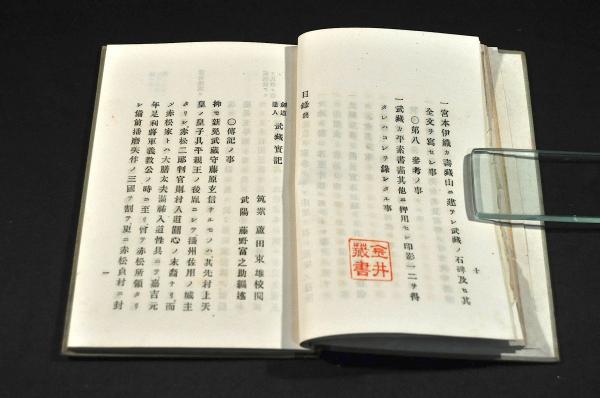 一宮本伊織カ壽藏山ニ建テシ武藏ノ石碑及ヒ其
全文ヲ寫セシ事
〇第八 參考ノ事
一武藏カ平素書畵其他ニ押用セシ印影一二ヲ得
タレハコレヲ錄シタル事
目錄終
十
金井
藏書
劍道
達人 武藏實記
筑紫 蘆田束雄校閱
武陽 藤野富之助編述
〇傳記ノ事
抑モ新免武藏守藤原玄信ナルモノハ其先村上天
皇ノ皇子具平親王ノ後胤ニシテ播州佐用ノ城主
タリシ赤松二郎判官則村入道圓心ノ末裔ナリ而
年足利將軍義敎公ノ時ニ至リ曾テ赤松所領タリ
シ備前播磨美作ノ三國ヲ割テ更ニ赤松貞村ニ封
一